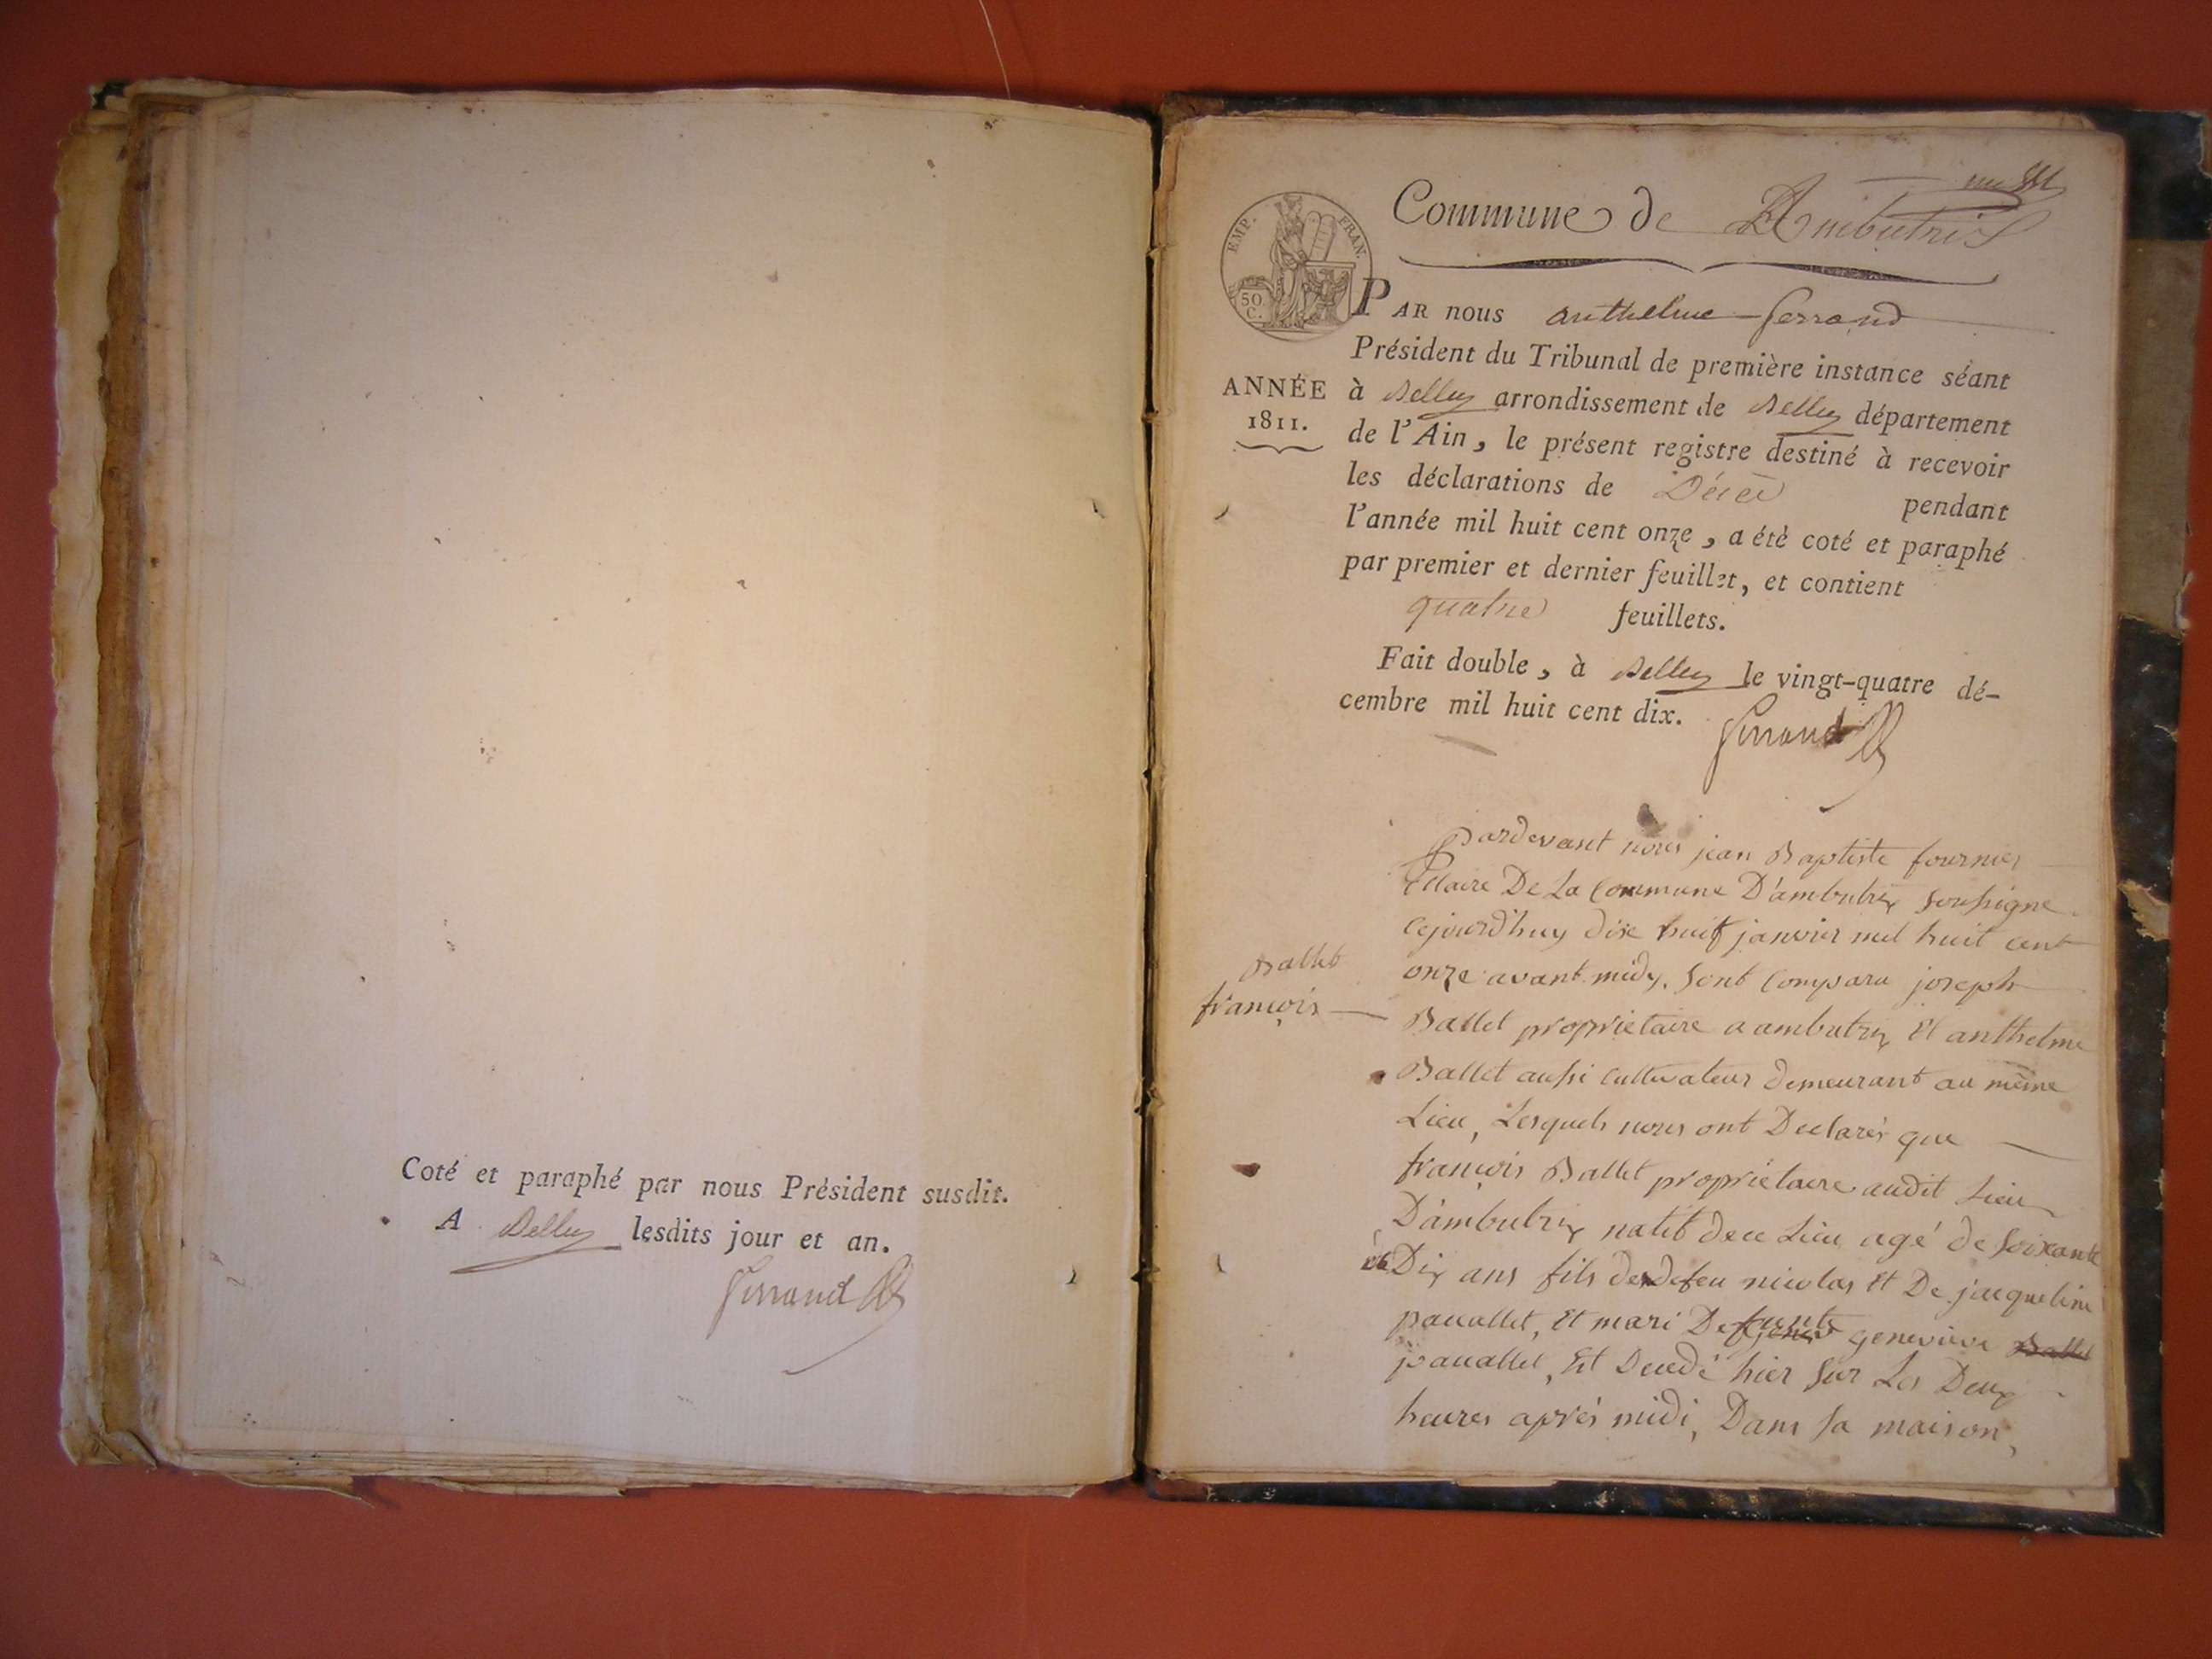 Coté et paraphé par nous Président susdit.
A Belley lesdits jour et an.
Ferrand
Commune de Ambutrix
EMP. FRAN.
50 C.
PAR nous anthelme ferrand
Président du Tribunal de première instance séant
ANNÉE
1811.
à Belley arrondissement de Belley département
de l'Ain, le présent registre destiné à recevoir
les déclarations de Décès pendant
l'année mil huit cent onze, a étè coté et paraphé
par premier et dernier feuillet, et contient
quatre feuillets.
Fait double, à Belley le vingt-quatre dé-
cembre mil huit cent dix.
Ferrand
Ballet
françois
Pardevant nous jean Baptiste fournier
Maire De La Commune D'ambutrix soussigné
cejourd'huy dix huit janvier mil huit cent
onze avant midy, sont comparu joseph
Ballet proprietaire a ambutrix Et anthelme
Ballet aussi cultivateur demeurant au même
Lieu, Lesquels nous ont Declarés que
françois Ballet proprietaire audit Lieu
D'ambutrix natif de ce Lieu agé de soixante
et Dix ans fils de feu nicolas Et De jacqueline
pauallet, Et mari De funte genevieve Ballet
pauallet, Est Decedé hier sur Les Deux
heures après midi, Dans sa maison,